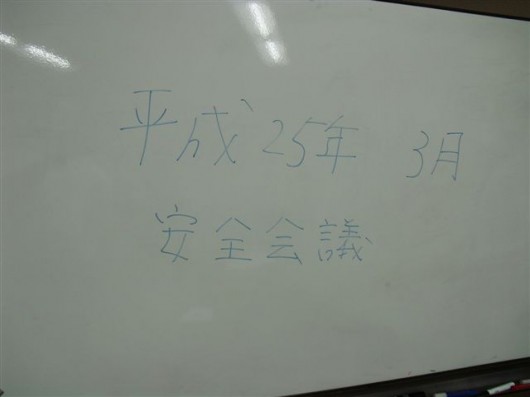 平成25年 3月
安全会議